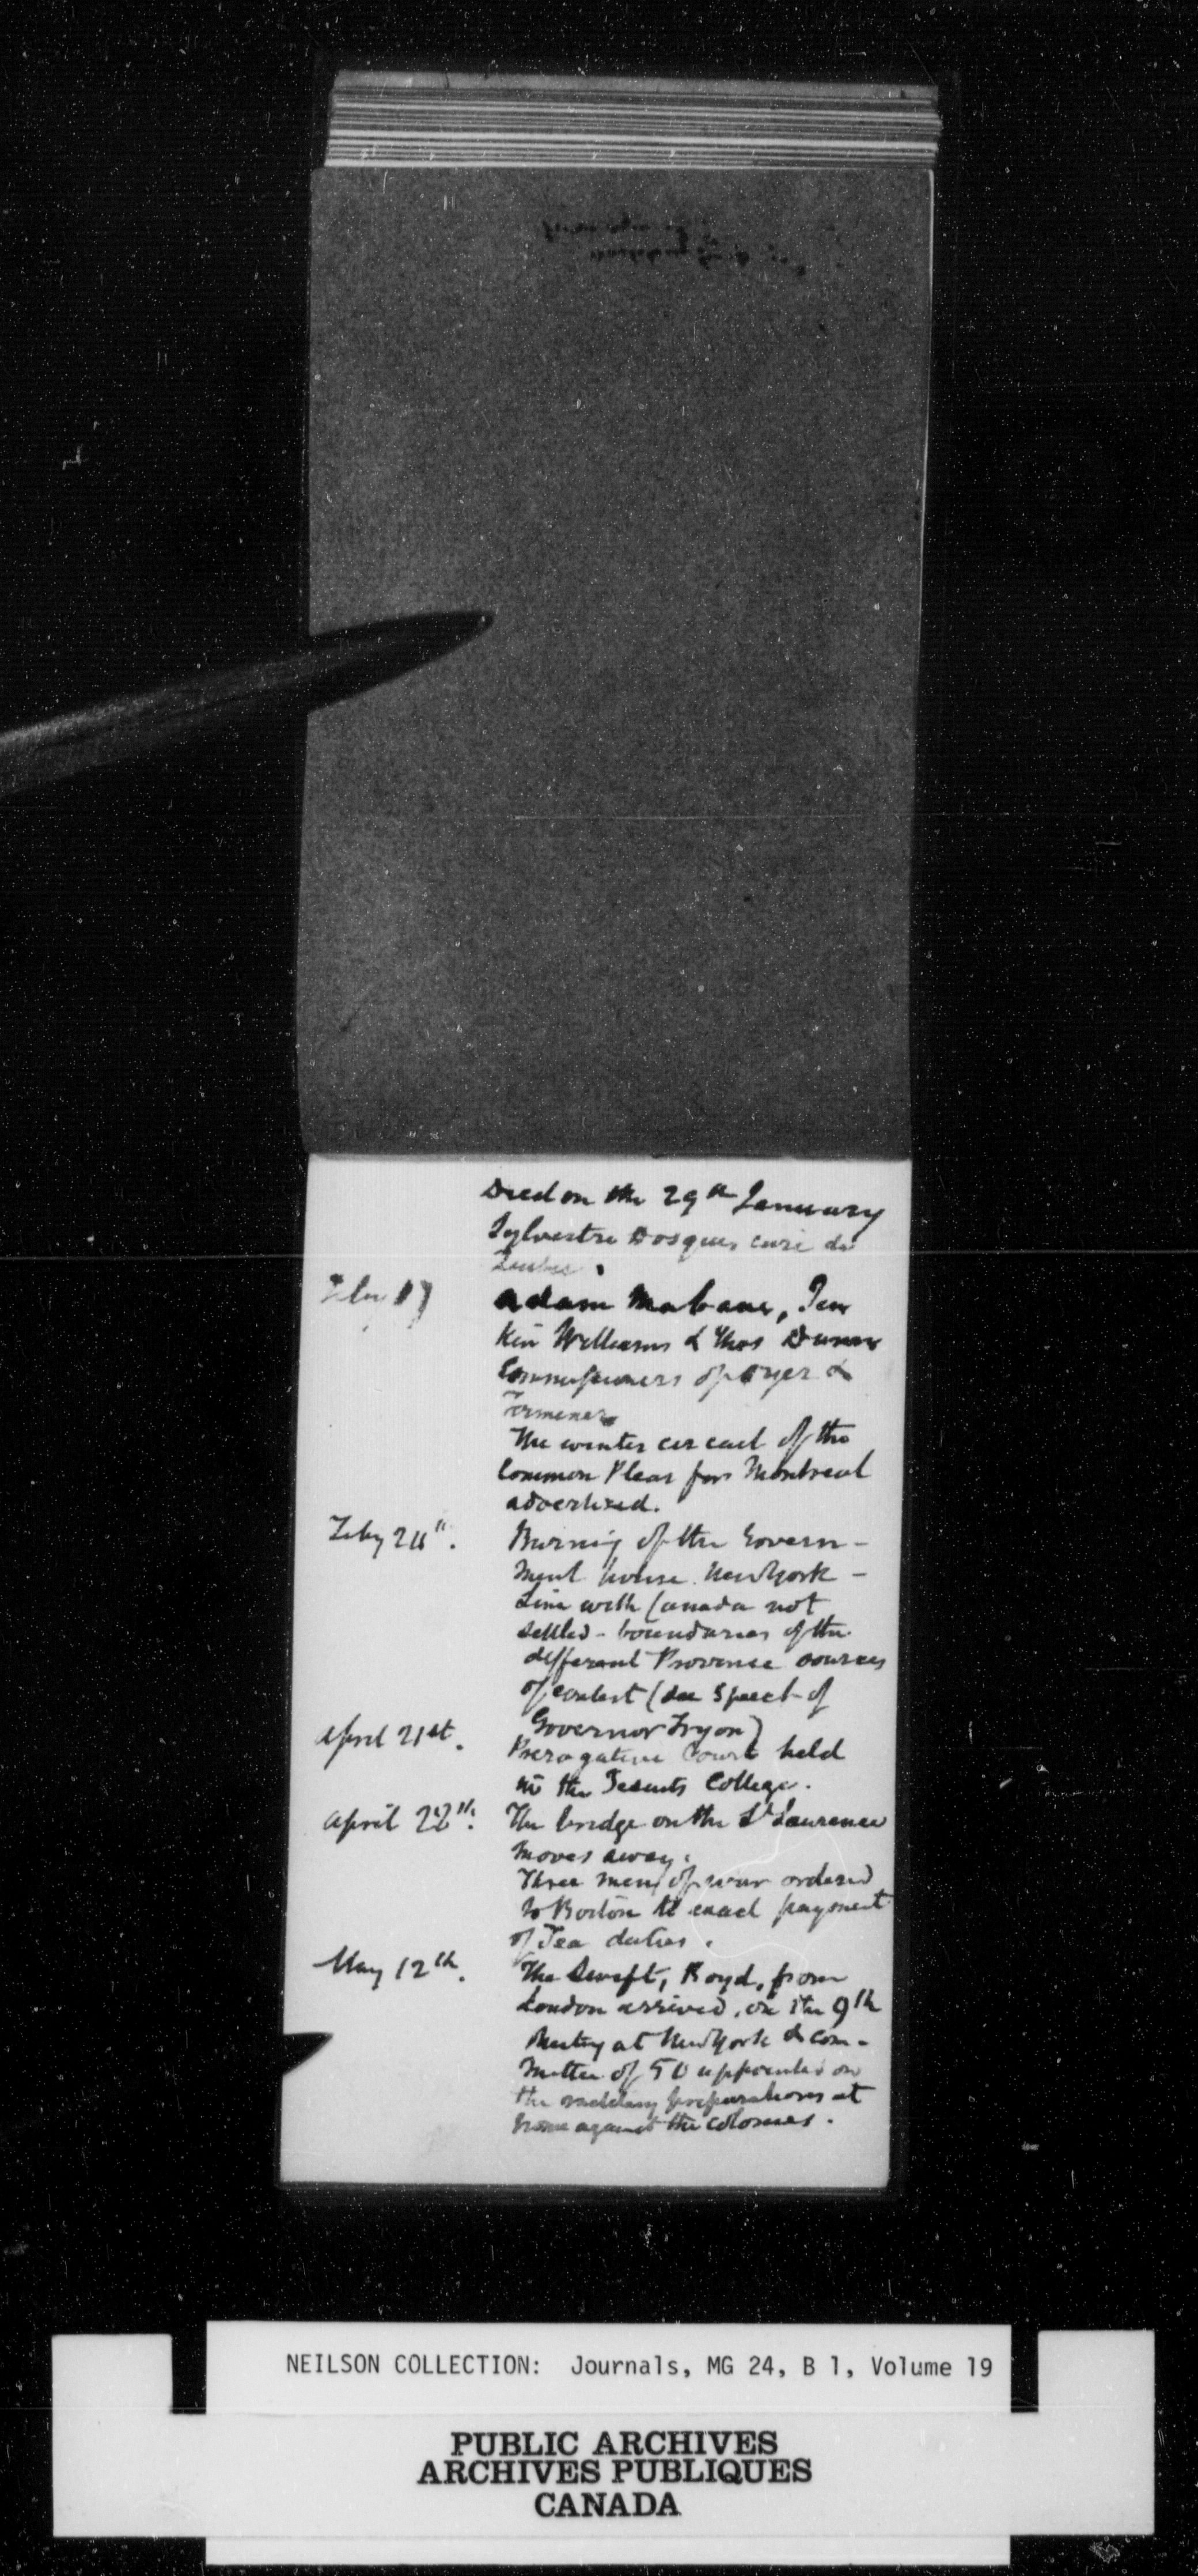 Died on the 29th January
Sylvestre Dosque, curé de
Quebec.
Feby 17 Adam Mabane, Jen
kin Williams & Thos Dunn
Commissioners of Oyer &
Terminer
The winter circuit of the
Common Pleas for Montreal
advertised.
Feby 24th. Burning of the Govern-
ment house New York -
Line with Canada not
settled - boundaries of the
different Province sources
of contest (see Speech of
Governor Tryon)
April 21st. Prerogative Court held
in the Jesuits College.
April 22d. The bridge on the St Lawrence
moves away.
Three men of war ordered
to Boston to exact payment
of Tea duties.
May 12th. The Swift, Boyd, from
London arrived, on the 9th
Meeting at New York & com-
mittee of 50 appointed on
the military preparations at
home against the colonies.
NEILSON COLLECTION: Journals, MG 24, B 1, Volume 19
PUBLIC ARCHIVES
ARCHIVES PUBLIQUES
CANADA